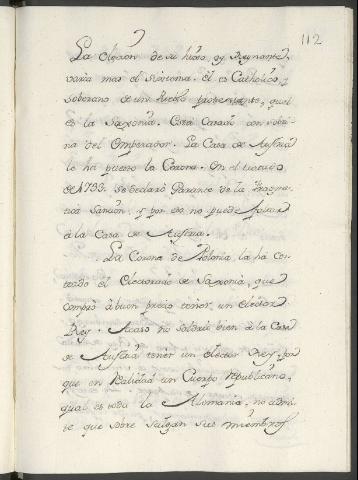 112
La eleccion de su hijo oy Reynante,
varia mas el sistema. el es Catholico, y
soberano de un Pueblo protestante, qual
es la Saxonia. Está casado con sobri-
na del Emperador. La Casa de Austria
le ha puesto la Corona. En el tratado
de 1733. se declaró Garante de la Pragma-
tica Sancion, y por eso no puede faltar
à la Casa de Austria.
La Corona de Polonia, la ha cos-
teado el Electorado de Saxonia, que
compró à buen precio tener un elector
Rey. Acaso no saldria bien à la Casa
de Austria tener un elector Rey, por
que en realidad un Cuerpo republicano,
qual es toda la Alemania, no admi-
te que sobre salgan sus miembros